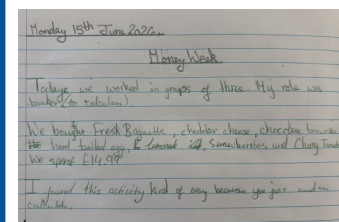 Monday 15th June 2026.
Money Week.
Today we worked in groups of three. My role was
banker (to calculate).
We bought Fresh Baguette, cheddar cheese, chocolate brownie
hard boiled egg, lemonade, Strawberries and Cherry Tomato
We spent £14.99
I found this activity kind of easy because you just
calculate.